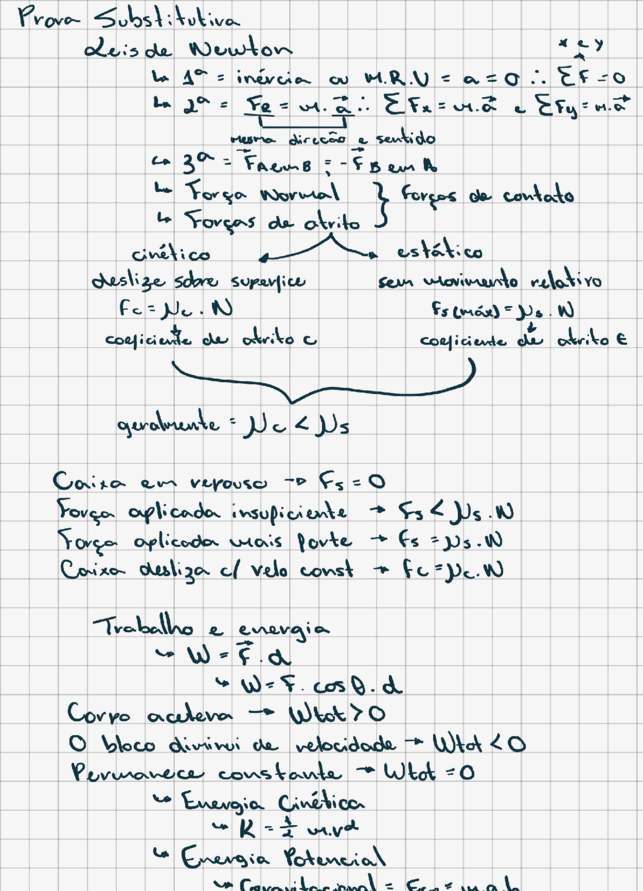 Prova Substitutiva
Leis de Newton
x e y
↳ 1ª = inércia ou M.R.U = a = 0 ∴ ΣF⃗ = 0
↳ 2ª = F⃗e = m.a⃗ ∴ ΣFx = m.a⃗ e ΣFy = m.a⃗
mesma direção e sentido
↳ 3ª = F⃗A em B = -F⃗B em A
↳ Força Normal } forças de contato
↳ Forças de atrito
cinético estático
deslize sobre superfice sem movimento relativo
Fc = μc . N Fs (máx) = μs . N
coeficiente de atrito c coeficiente de atrito E
geralmente = μc < μs
Caixa em repouso → Fs = 0
Força aplicada insuficiente → Fs < μs . N
Força aplicada mais forte → fs = μs . N
Caixa desliza c/ velo const → fc = μc . N
Trabalho e energia
↳ W = F⃗ . d
↳ W = F . cos θ . d
Corpo acelera → Wtot > 0
O bloco diminui de velocidade → Wtot < 0
Permanece constante → Wtot = 0
↳ Energia Cinética
↳ K = 1/2 m.v²
↳ Energia Potencial
↳ Gravitacional =